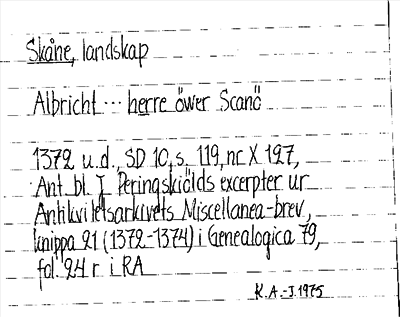 Skåne, landskap
Albricht ... herre öwer Scanö
1372 u.d., SD 10, s. 119, nr X 127,
Ant. bl. J. Peringskiölds excerpter ur
Antikvitetsarkivets Miscellanea-brev,
knippa 21 (1372-1374) i Genealogica 79,
fol. 24 r i RA
K.A.-J. 1975